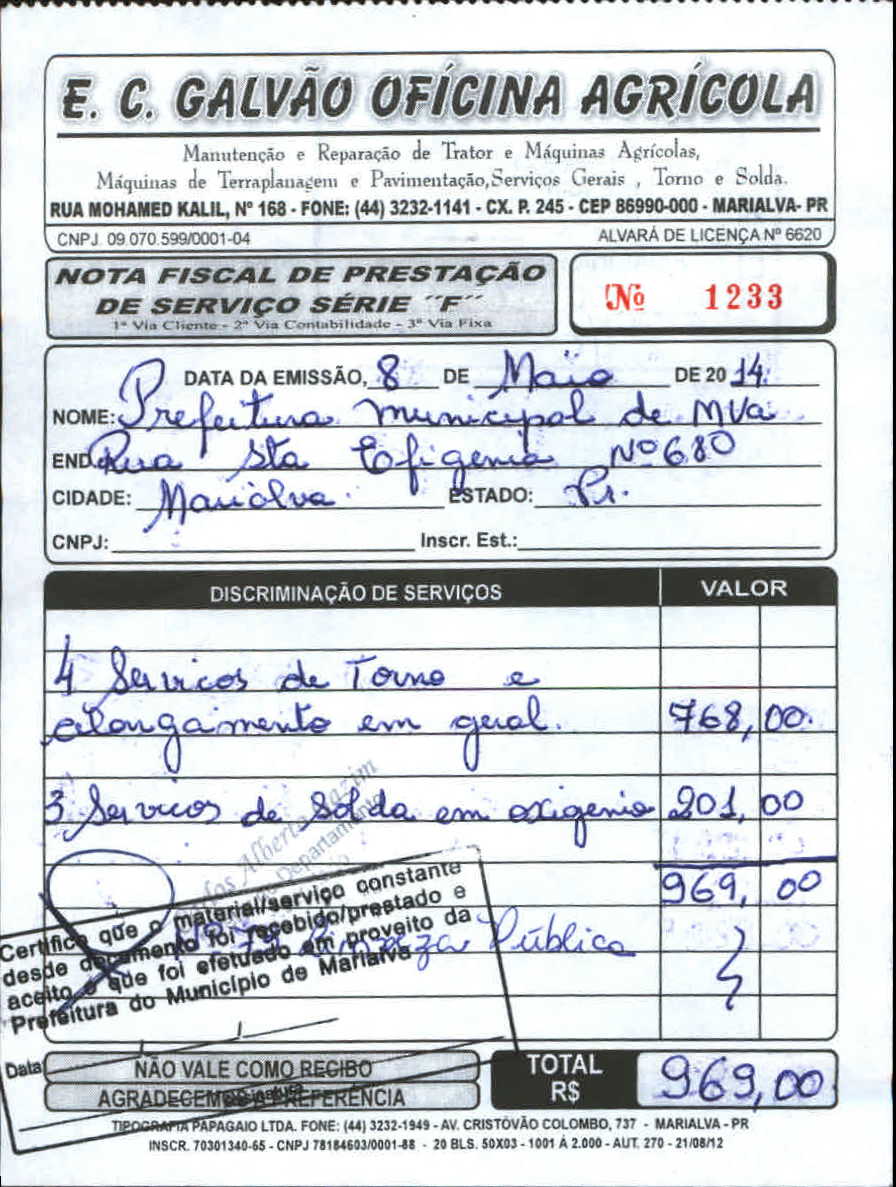 E. C. GALVÃO OFÍCINA AGRÍCOLA
Manutenção e Reparação de Trator e Máquinas Agrícolas,
Máquinas de Terraplanagem e Pavimentação,Serviços Gerais , Torno e Solda.
RUA MOHAMED KALIL, Nº 168 - FONE: (44) 3232-1141 - CX. P. 245 - CEP 86990-000 - MARIALVA- PR
CNPJ. 09.070.599/0001-04 ALVARÁ DE LICENÇA Nº 6620
NOTA FISCAL DE PRESTAÇÃO
DE SERVIÇO SÉRIE "F"
1ª Via Cliente - 2ª Via Contabilidade - 3ª Via Fixa
Nº 1233
DATA DA EMISSÃO, 8 DE Maio DE 2014.
NOME: Prefeitura municipal de MVa
END. Rua Sta Efigenia Nº 680
CIDADE: Marialva. ESTADO: Pr.
CNPJ: Inscr. Est.:
DISCRIMINAÇÃO DE SERVIÇOS VALOR
4 Servicos de Torno e
alongamento em geral. 768,00.
3 Servicos de Solda em oxigenio 201,00
969,00
Carlos Alberto
Departamento
Certifico que o material/serviço constante
desde documento foi recebido/prestado e
aceito e que foi efetuado em proveito da
Prefeitura do Município de Marialva
Limpeza Pública
Data
NÃO VALE COMO RECIBO
AGRADECEMOS A PREFERÊNCIA
TOTAL
R$ 969,00
TIPOGRAFIA PAPAGAIO LTDA. FONE: (44) 3232-1949 - AV. CRISTÓVÃO COLOMBO, 737 - MARIALVA - PR
INSCR. 70301340-65 - CNPJ 78184603/0001-88 - 20 BLS. 50X03 - 1001 Á 2.000 - AUT. 270 - 21/08/12